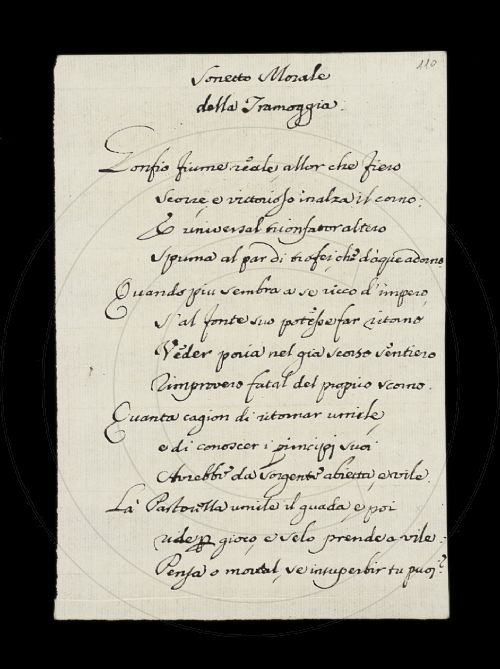 110
Sonetto Morale
della Tramoggia.
Gonfio fiume reale, allor che fiero
Scorre, e vittorioso inalza il corno:
E universal trionfator altero
Spuma al par di trofei, che d'aque adorno
Quando più sembra a se ricco d'impero,
S'al fonte suo potesse far ritorno
Veder poria nel già scorso sentiero
Rimprovero fatal del proprio scorno.
Quanta cagion di ritornar umile,
e di conoscer i principj suoi
Avrebbe da sorgente abietta, e vile.
Là Pastorella umile il guada, e poi
ride p gioco, e selo prende a vile:
Pensa o mortal, se insuperbir tu puoi?